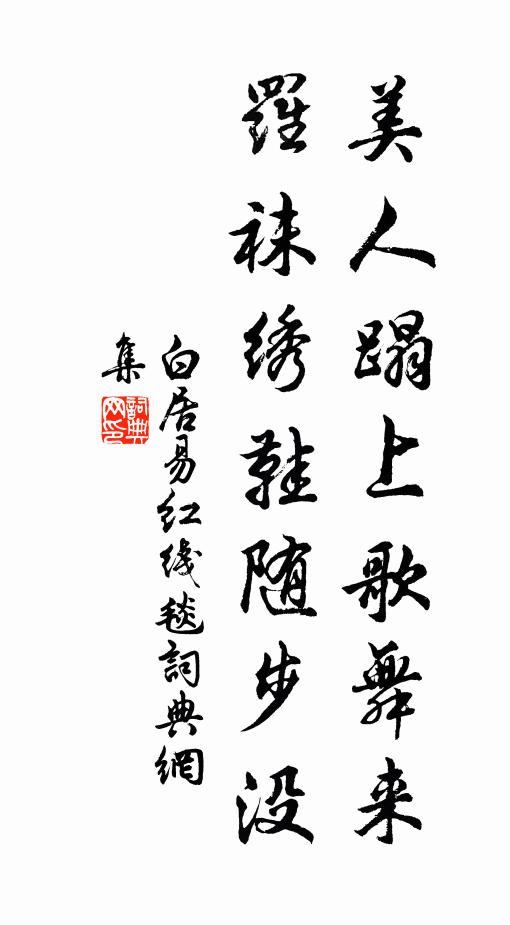 美人蹋上歌舞来
羅袜绣鞋随步没
白居易红线毯詞典網
集
詞典
网印